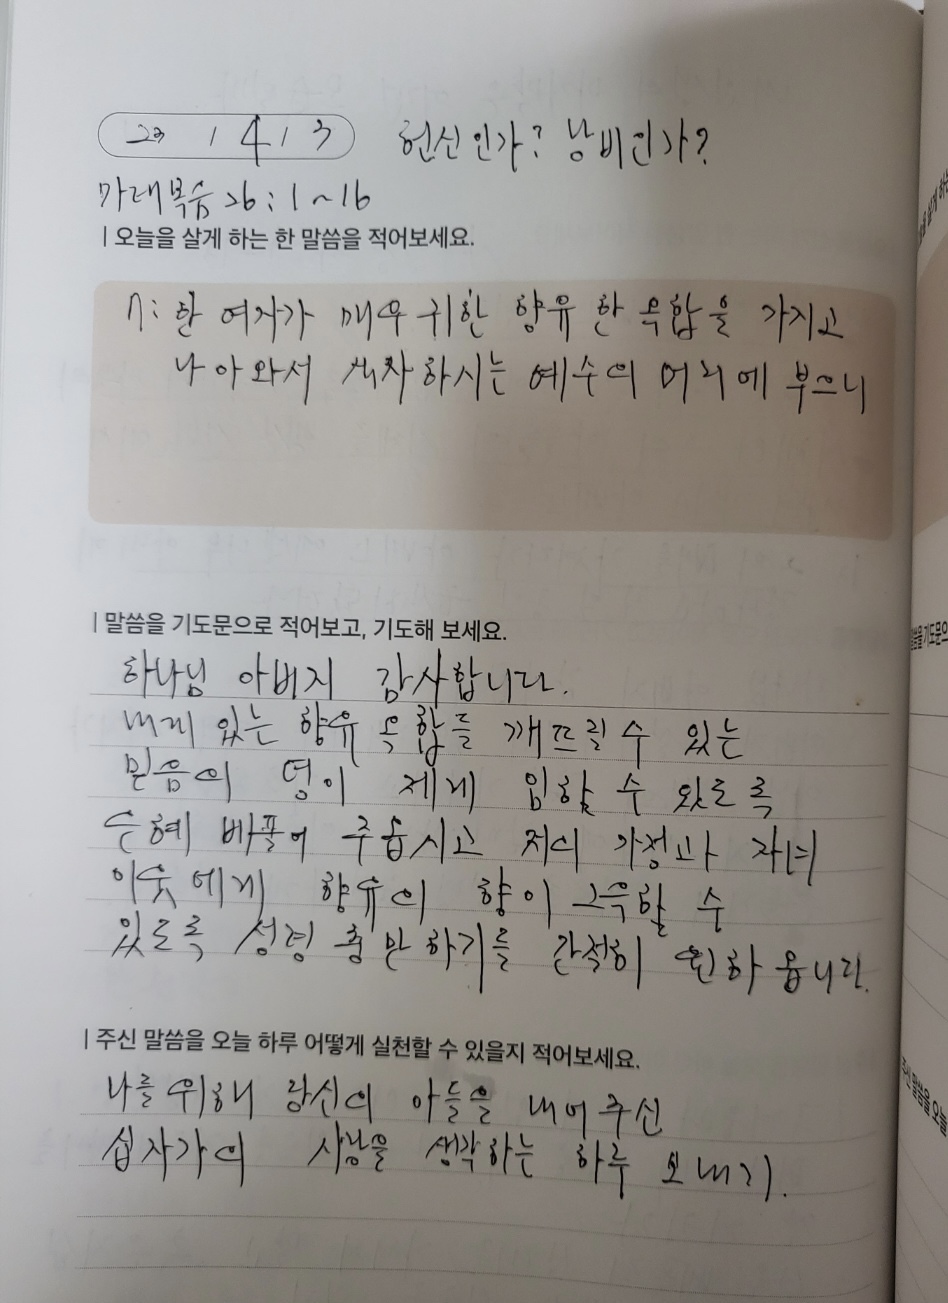 23 / 4 / 3 헌신인가? 낭비인가?
마태복음 26:1~16
| 오늘을 살게 하는 한 말씀을 적어보세요.
7: 한 여자가 매우 귀한 향유 한 옥합을 가지고
나아와서 식사하시는 예수의 머리에 부으니
| 말씀을 기도문으로 적어보고, 기도해 보세요.
하나님 아버지 감사합니다.
내게 있는 향유 옥합을 깨뜨릴 수 있는
믿음의 영이 제게 임할 수 있도록
은혜 베풀어 주옵시고 저의 가정과 자녀
이웃에게 향유의 향이 그윽할 수
있도록 성령 충만하기를 간절히 원하옵니다.
| 주신 말씀을 오늘 하루 어떻게 실천할 수 있을지 적어보세요.
나를 위해 당신의 아들을 내어 주신
십자가의 사랑을 생각하는 하루 보내기.